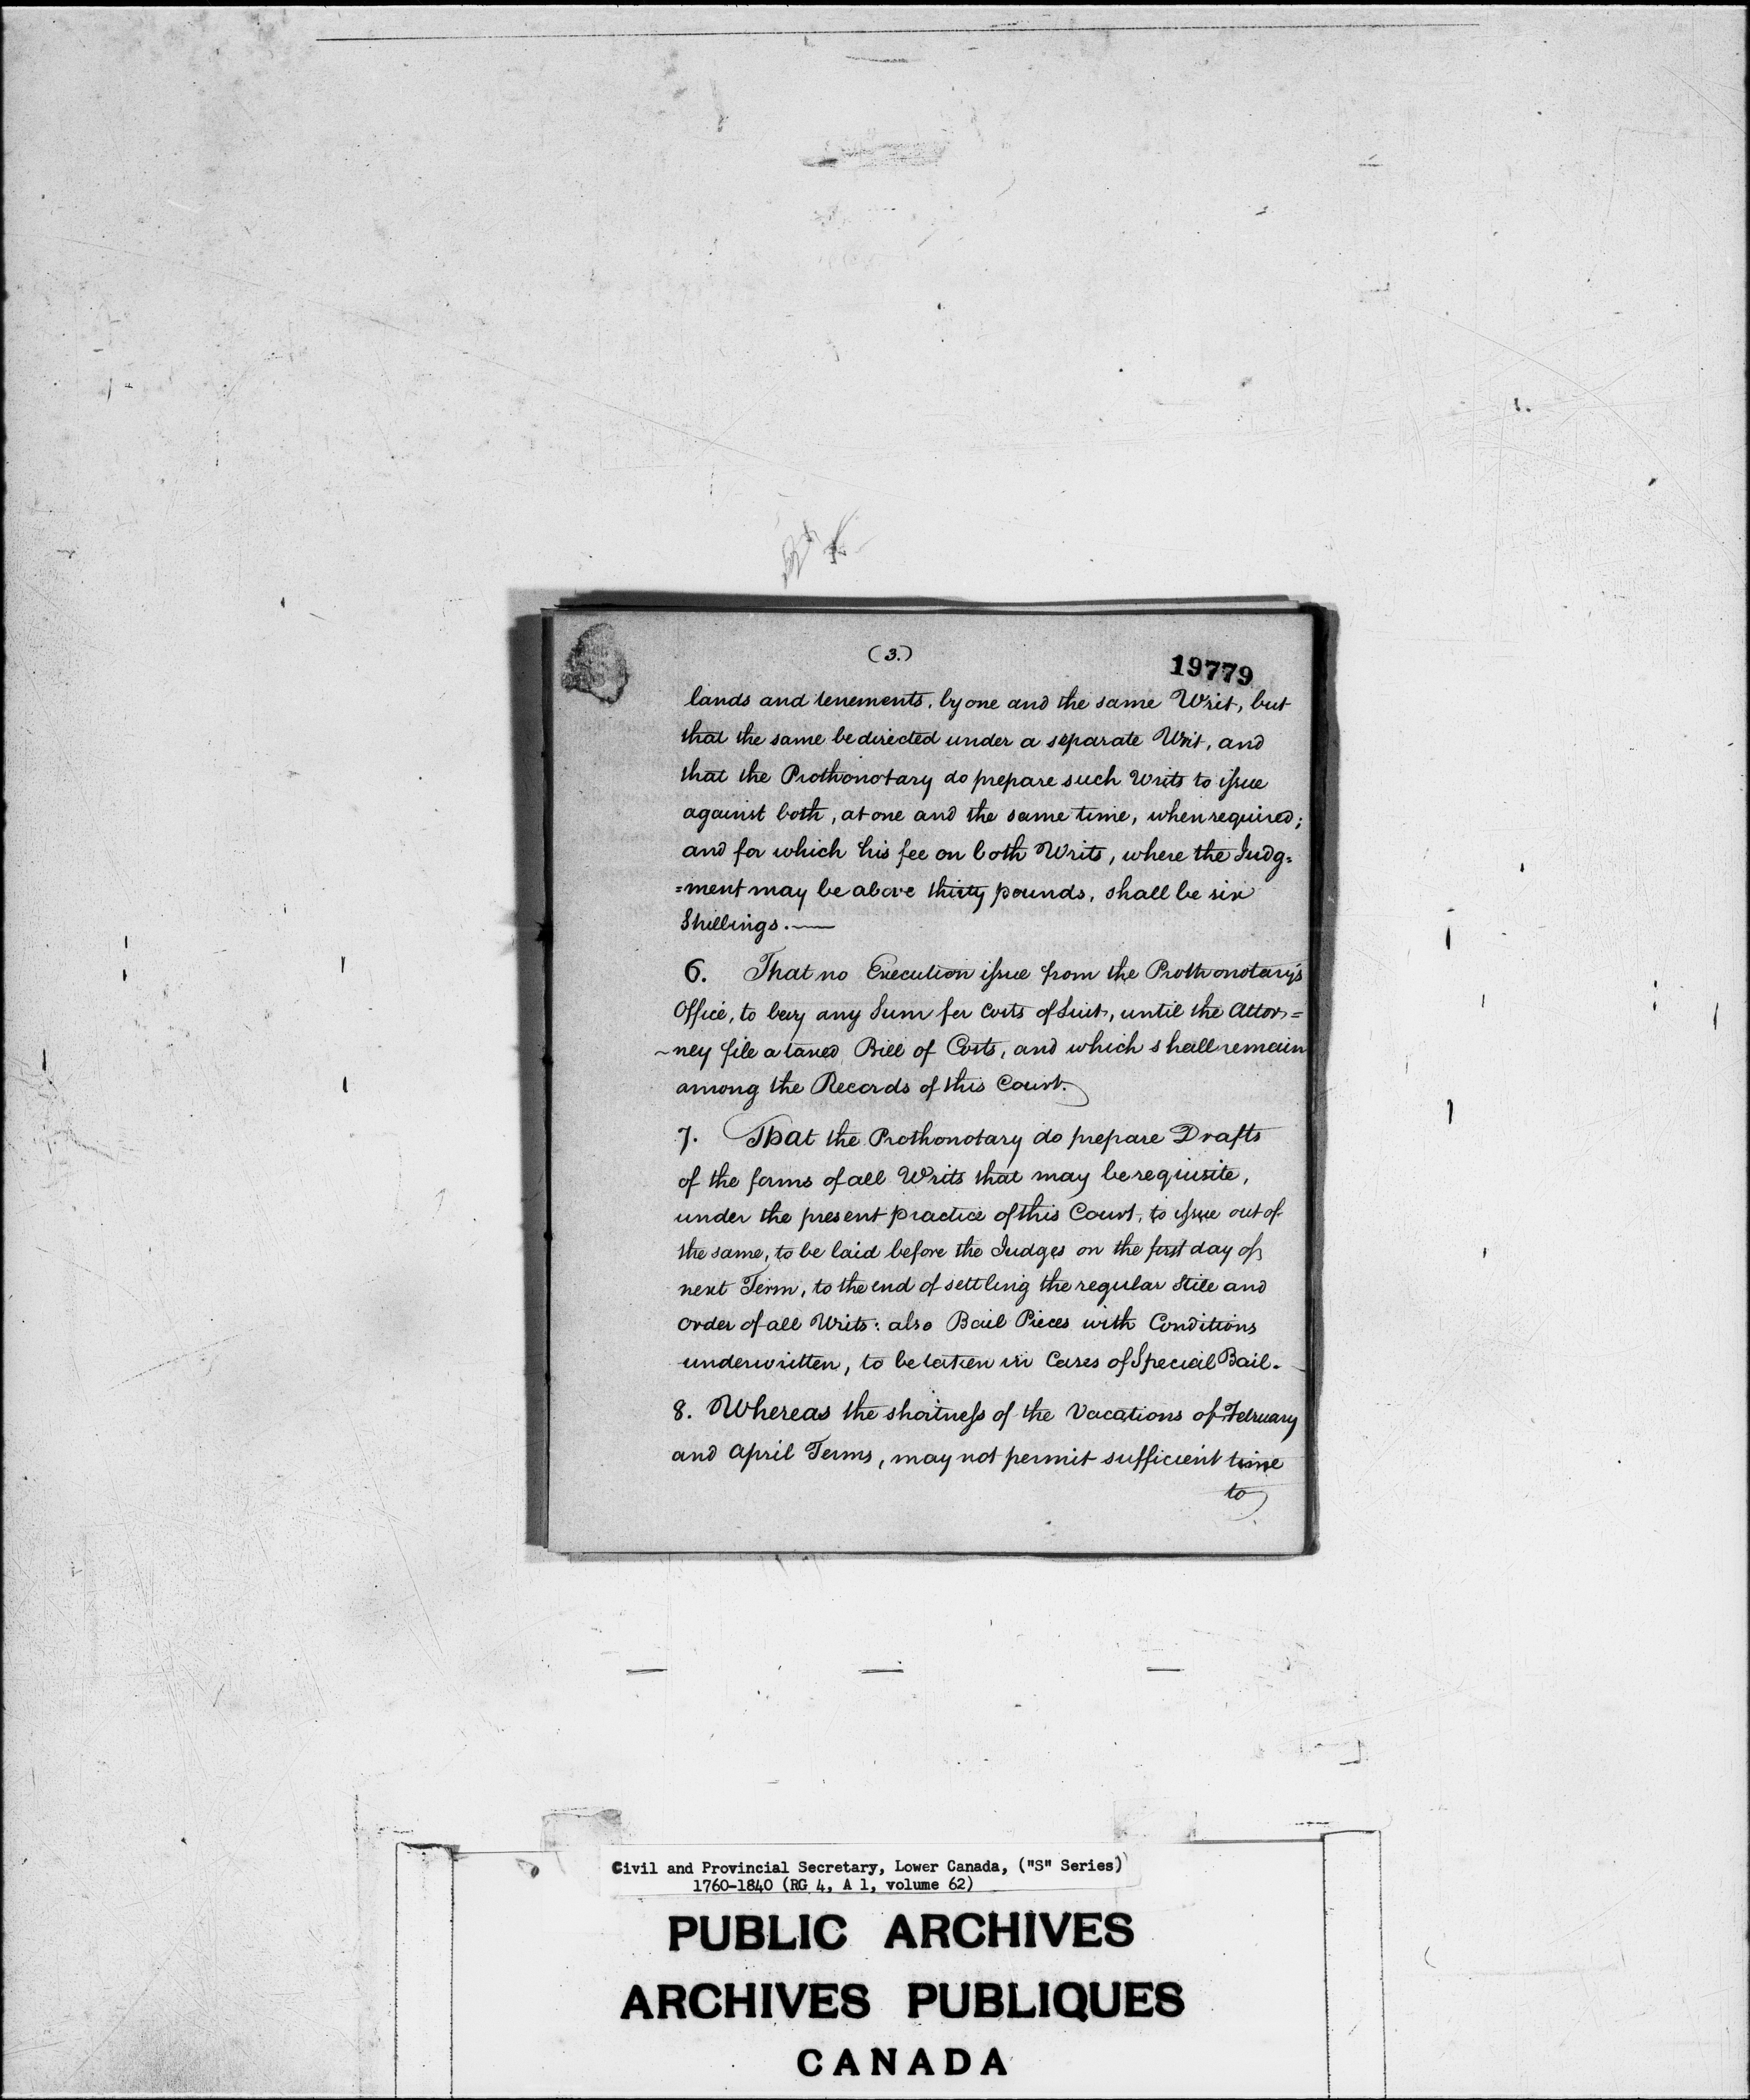 (3.)
19779
lands and tenements, by one and the same Writ, but
that the same be directed under a separate Writ, and
that the Prothonotary do prepare such Writs to issue
against both, at one and the same time, when required;
and for which his fee on both Writs, where the Judg=
=ment may be above thirty pounds, shall be six
Shillings.—
6. That no Execution issue from the Prothonotary's
Office, to levy any Sum for Costs of Suit, until the Attor=
~ney file a taxed Bill of Costs, and which shall remain
among the Records of this Court.
7. That the Prothonotary do prepare Drafts
of the forms of all Writs that may be requisite,
under the present practice of this Court, to issue out of
the same, to be laid before the Judges on the first day of
next Term, to the end of settling the regular Stile and
Order of all Writs: also Bail Pieces with Conditions
underwritten, to be taken in Cases of Special Bail.
8. Whereas the shortness of the Vacations of February
and April Terms, may not permit sufficient time
to
Civil and Provincial Secretary, Lower Canada, ("S" Series)
1760-1840 (RG 4, A 1, volume 62)
PUBLIC ARCHIVES
ARCHIVES PUBLIQUES
CANADA